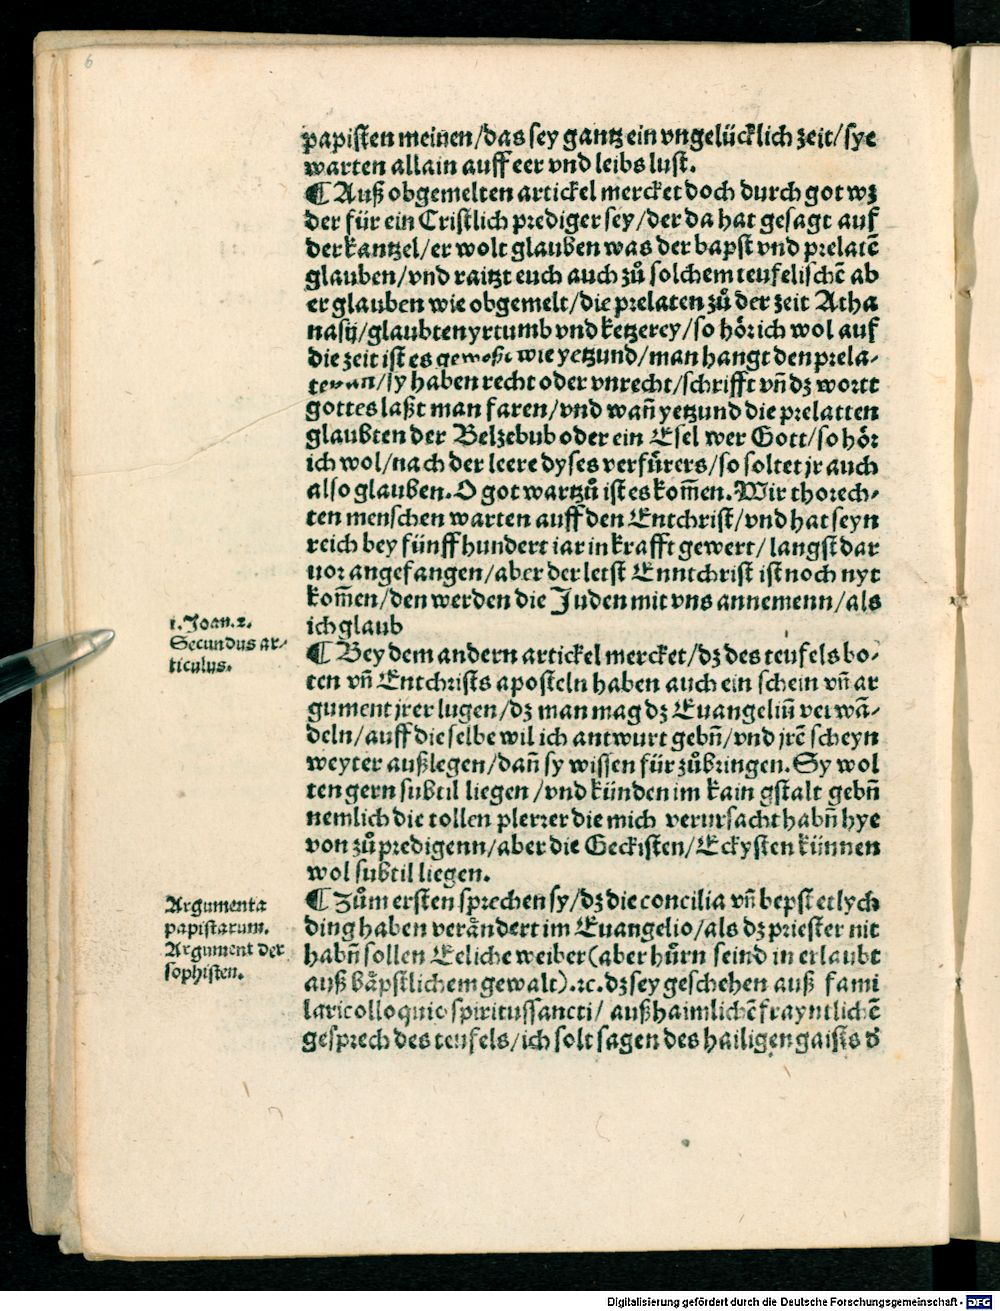 6
papisten meinen/das sey gantz ein vngelücklich zeit/sye
warten allain auff eer vnd leibs lust.
¶ Auß obgemelten artickel mercket doch durch got wz
der für ein Cristlich prediger sey/der da hat gesagt auf
der kantzel/er wolt glauben was der bapst vnd prelatē
glauben/vnd raitzt euch auch zů solchem teufelischē ab
er glauben wie obgemelt/die prelaten zů der zeit Atha
nasij/glaubten yrtumb vnd ketzerey/so hör ich wol auf
die zeit ist es geweßt wie yetzund/man hangt den prela⸗
ten an/sy haben recht oder vnrecht/schrifft vn̄ dz wortt
gottes laßt man faren/vnd wan̄ yetzund die prelatten
glaubten der Belzebub oder ein Esel wer Gott/so hör
ich wol/nach der leere dyses verfürers/so soltet jr auch
also glauben. O got wartzů ist es kom̄en. Wir thorech⸗
ten menschen warten auff den Entchrist/vnd hat seyn
reich bey fünff hundert iar in krafft gewert/ langst dar
uor angefangen/aber der letst Enntchrist ist noch nyt
kom̄en/den werden die Juden mit vns annemenn/als
ich glaub
1. Joan. 2.
Secundus ar⸗
ticulus.
¶ Bey dem andern artickel mercket/dz des teufels bo⸗
ten vn̄ Entchrists aposteln haben auch ein schein vn̄ ar
gument jrer lugen/dz man mag dz Euangeliū verwā⸗
deln/auff die selbe wil ich antwurt gebn̄/vnd jrē scheyn
weyter außlegen/dan̄ sy wissen für zůbringen. Sy wol
ten gern subtil liegen /vnd künden im kain gstalt gebn̄
nemlich die tollen plerrer die mich verursacht habn̄ hye
von zů predigenn/aber die Geckisten/Eckysten künnen
wol subtil liegen.
Argumenta
papistarum.
Argument der
sophisten.
¶ Zům ersten sprechen sy/dz die concilia vn̄ bepst etlych
ding haben verändert im Euangelio/als dz priester nit
habn̄ sollen Eeliche weiber(aber hůrn seind in erlaubt
auß bäpstlichem gewalt).ꝛc. dz sey geschehen auß fami
lari colloquio spiritussancti/ auß haimlichē frayntlichē
gesprech des teufels/ich solt sagen des hailigen gaists d̕
Digitalisierung gefördert durch die Deutsche Forschungsgemeinschaft - DFG